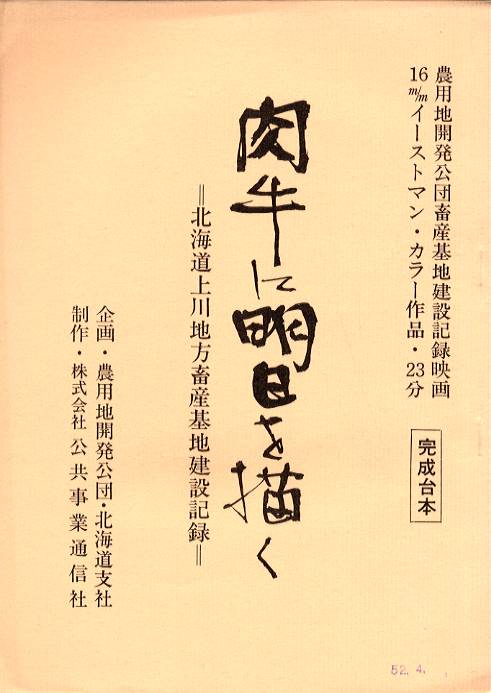 農用地開発公団畜産基地建設記録映画
16m/mイーストマン・カラー作品・23分
完成台本
肉牛に明日を描く
＝北海道上川地方畜産基地建設記録＝
企画・農用地開発公団・北海道支社
制作・株式会社公共事業通信社
52.4.